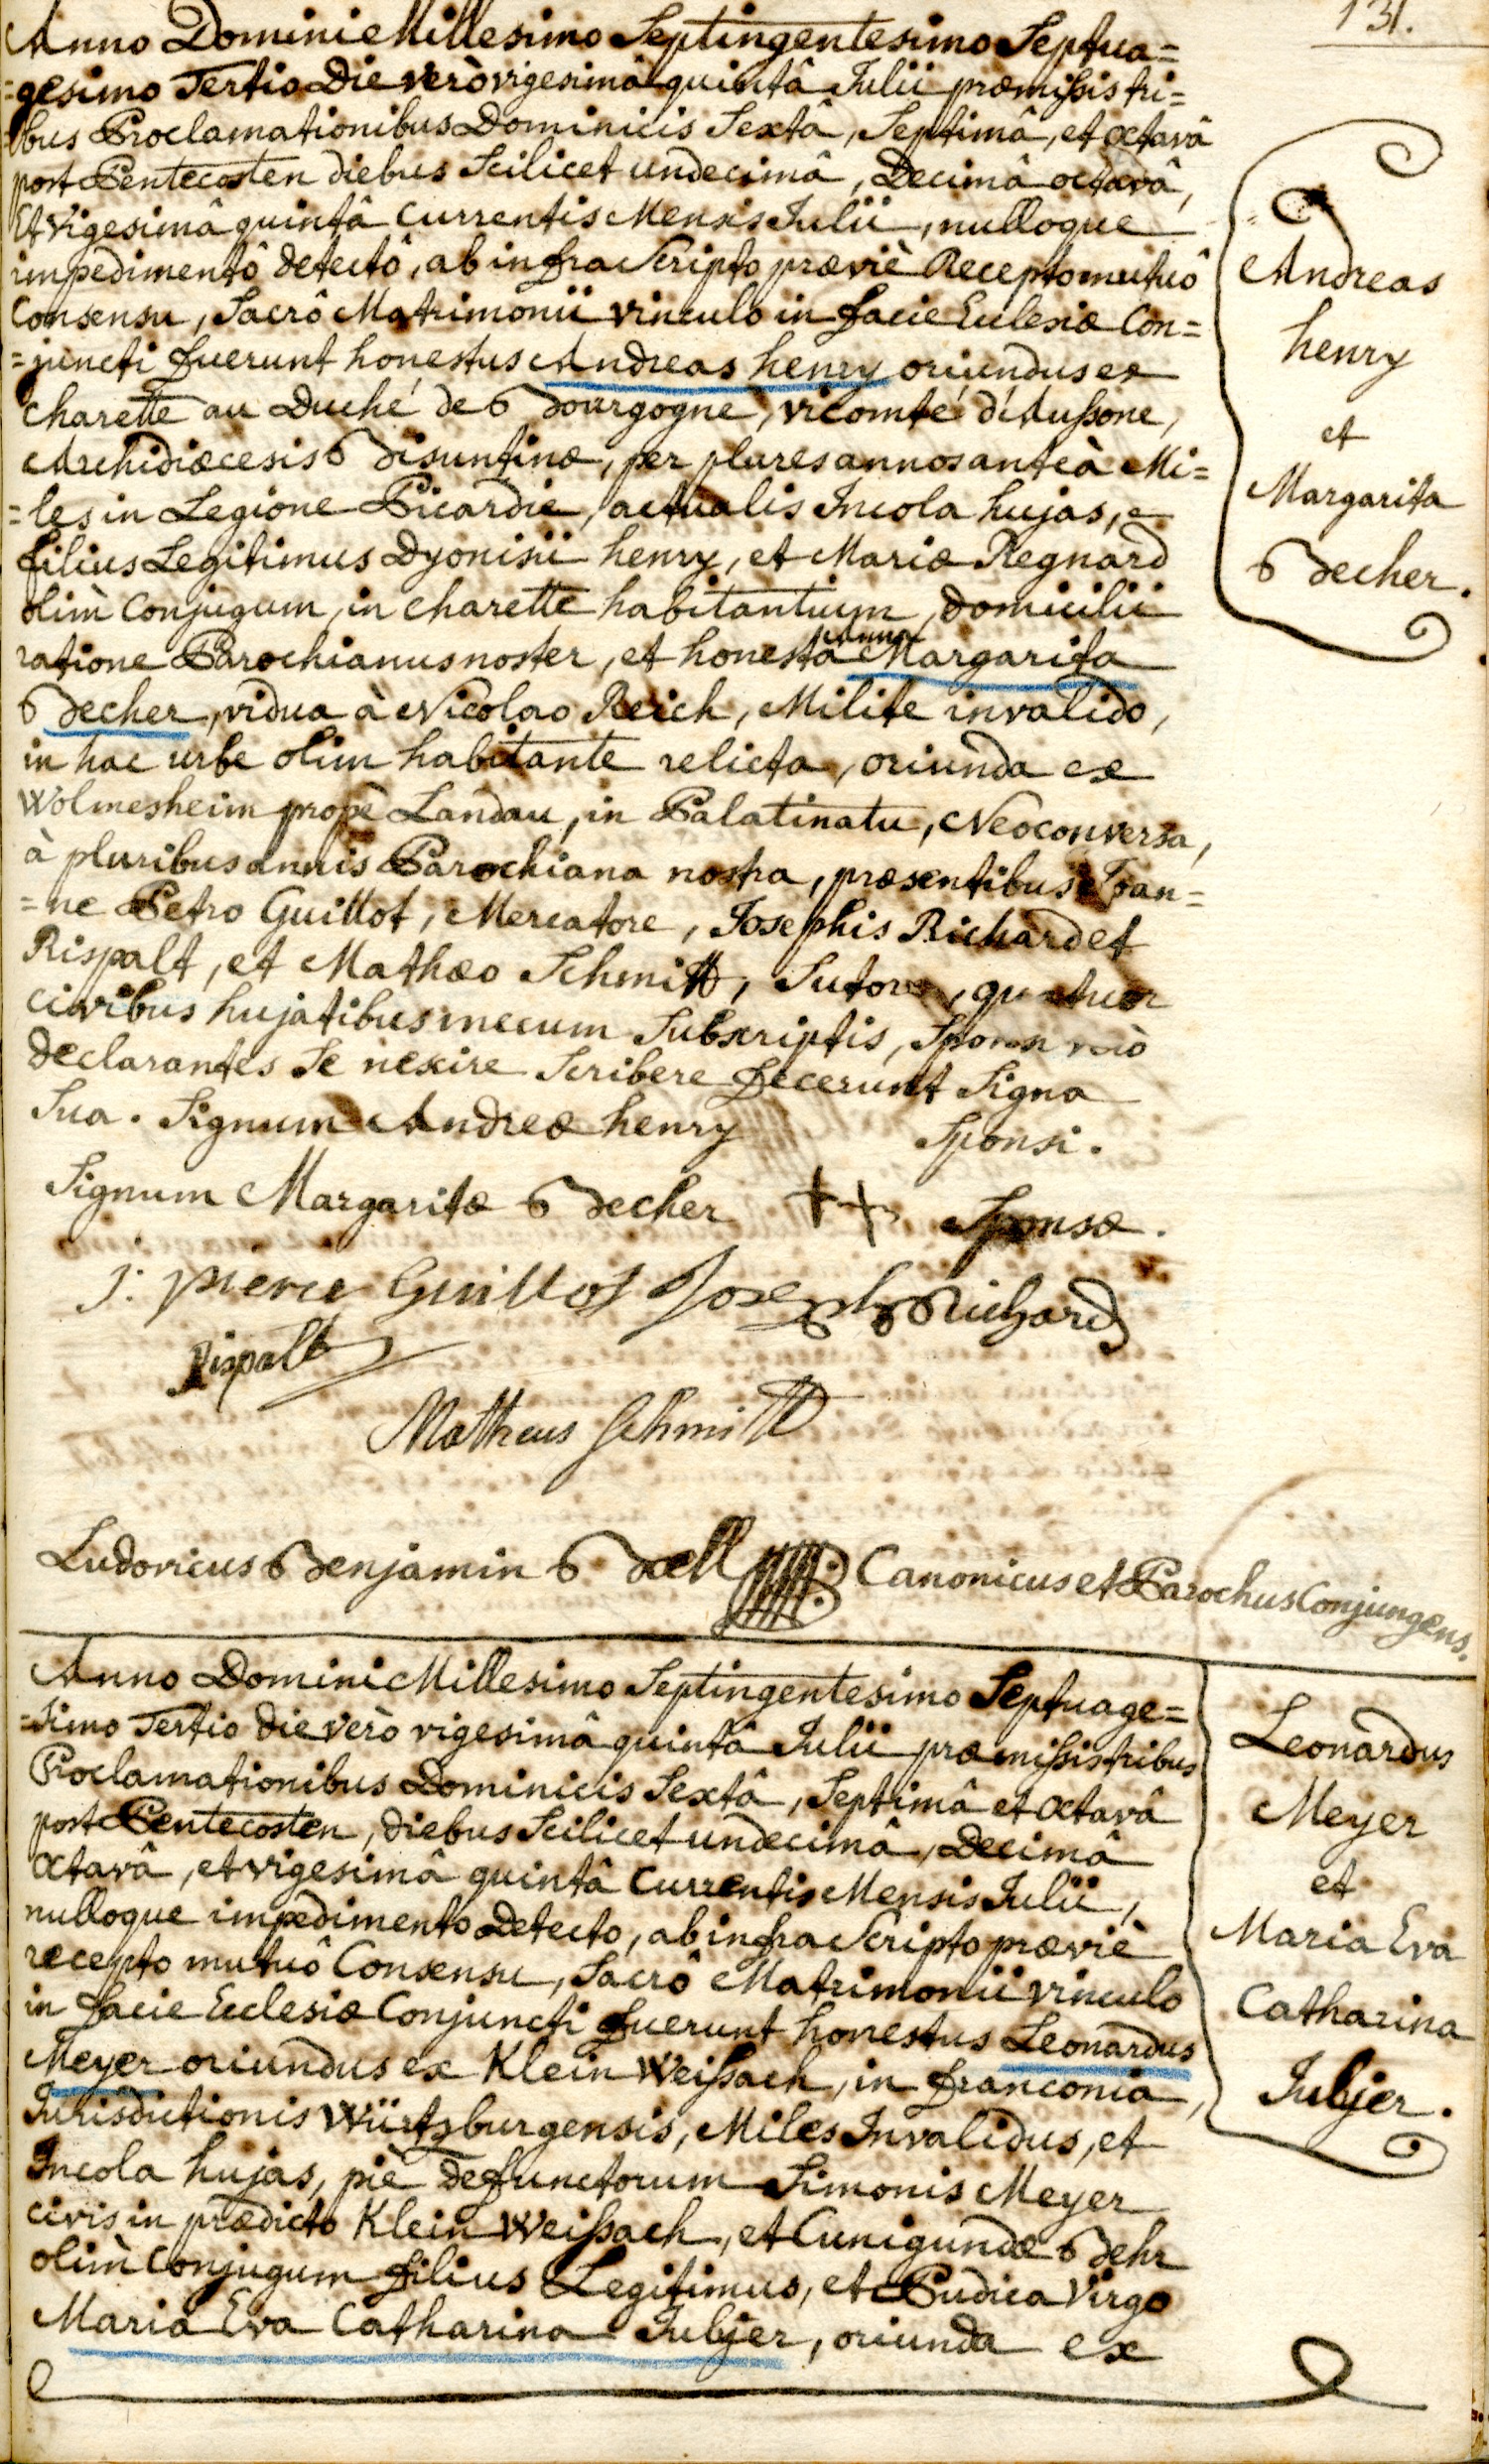 131.
Anno Domini Millesimo Septingentesimo Septua=
=gesimo Tertio Die verò vigesimâ quintâ Julii præmissis tri=
=bus Proclamationibus Dominicis Sextâ, Septimâ, et octavâ
post Pentecosten diebus Scilicet undecimâ, Decimâ octavâ,
Et vigesimâ quintâ Currentis Mensis Julii, nulloque
impedimentô detectô, ab infra Scripto præviè Recepto mutuô
Consensu, Sacrô Matrimonii vinculo in facie Eclesiæ Con=
=juncti fuerunt honestus Andreas henry oriundus ex
charette au Duché de Bourgogne, vicomté d'Aussone,
Archidiæcesis Bisuntinæ, per plures annos anteà Mi=
=les in Legione Picardie, actualis Incola hujas,
filius Legitimus Dyonisii henry, et Mariæ Regnard
olim Conjugum, in charette habitantium, domicilii
ratione Parochianus noster, et honesta Margarita
Becher, vidua à Nicolao Reich, Milite invalido,
in hac urbe olim habitante relicta, oriunda ex
Wolmesheim propè Landau, in Palatinatu, Neoconversa,
à pluribus annis Parochiana nostra, præsentibus Joan=
=ne Petro Guillot, Mercatore, Josephis Richard et
Rispalt, et Mathæo Schmitt, Sutore, quatuor
civibus hujatibus mecum Subscriptis, Sponsi verò
declarantes Se nescire Scribere fecerunt Signa
Sua. Signum Andreæ henry Sponsi.
Signum Margaritæ Becher ++ Sponsæ.
j: pierre Guillot Joseph Richard
Rispalt
Matheus Schmitt
Ludovicus Benjamin Bæll Canonicus et Parochus Conjungens.
Andreas
henry
et
Margarita
Becher.
Anno Domini Millesimo Septingentesimo Septuage=
=simo Tertio die verò vigesimâ quintâ Julii præmissis tribus
Proclamationibus Dominicis Sextâ, Septimâ et octavâ
post Pentecosten, diebus Scilicet undecimâ, Decimâ
octavâ, et vigesimâ quintâ Currentis Mensis Julii,
nulloque impedimento Detecto, ab infra Scripto præviè
recepto mutuô Consensu, Sacrô Matrimonii vinculo
in facie Ecclesiæ Conjuncti fuerunt honestus Leonardus
Meyer oriundus ex Klein Weissach, in franconia,
Jurisdictionis Würtzburgensis, Miles Invalidus, et
Incola hujas, piè defunctorum Simonis Meyer
civis in prædicto Klein Weissach, et Cunigundæ Behr
olim Conjugum filius Legitimus, et Pudica Virgo
Maria Eva Catharina Jubjer, oriunda ex
Leonardus
Meyer
et
Maria Eva
Catharina
Jubjer.